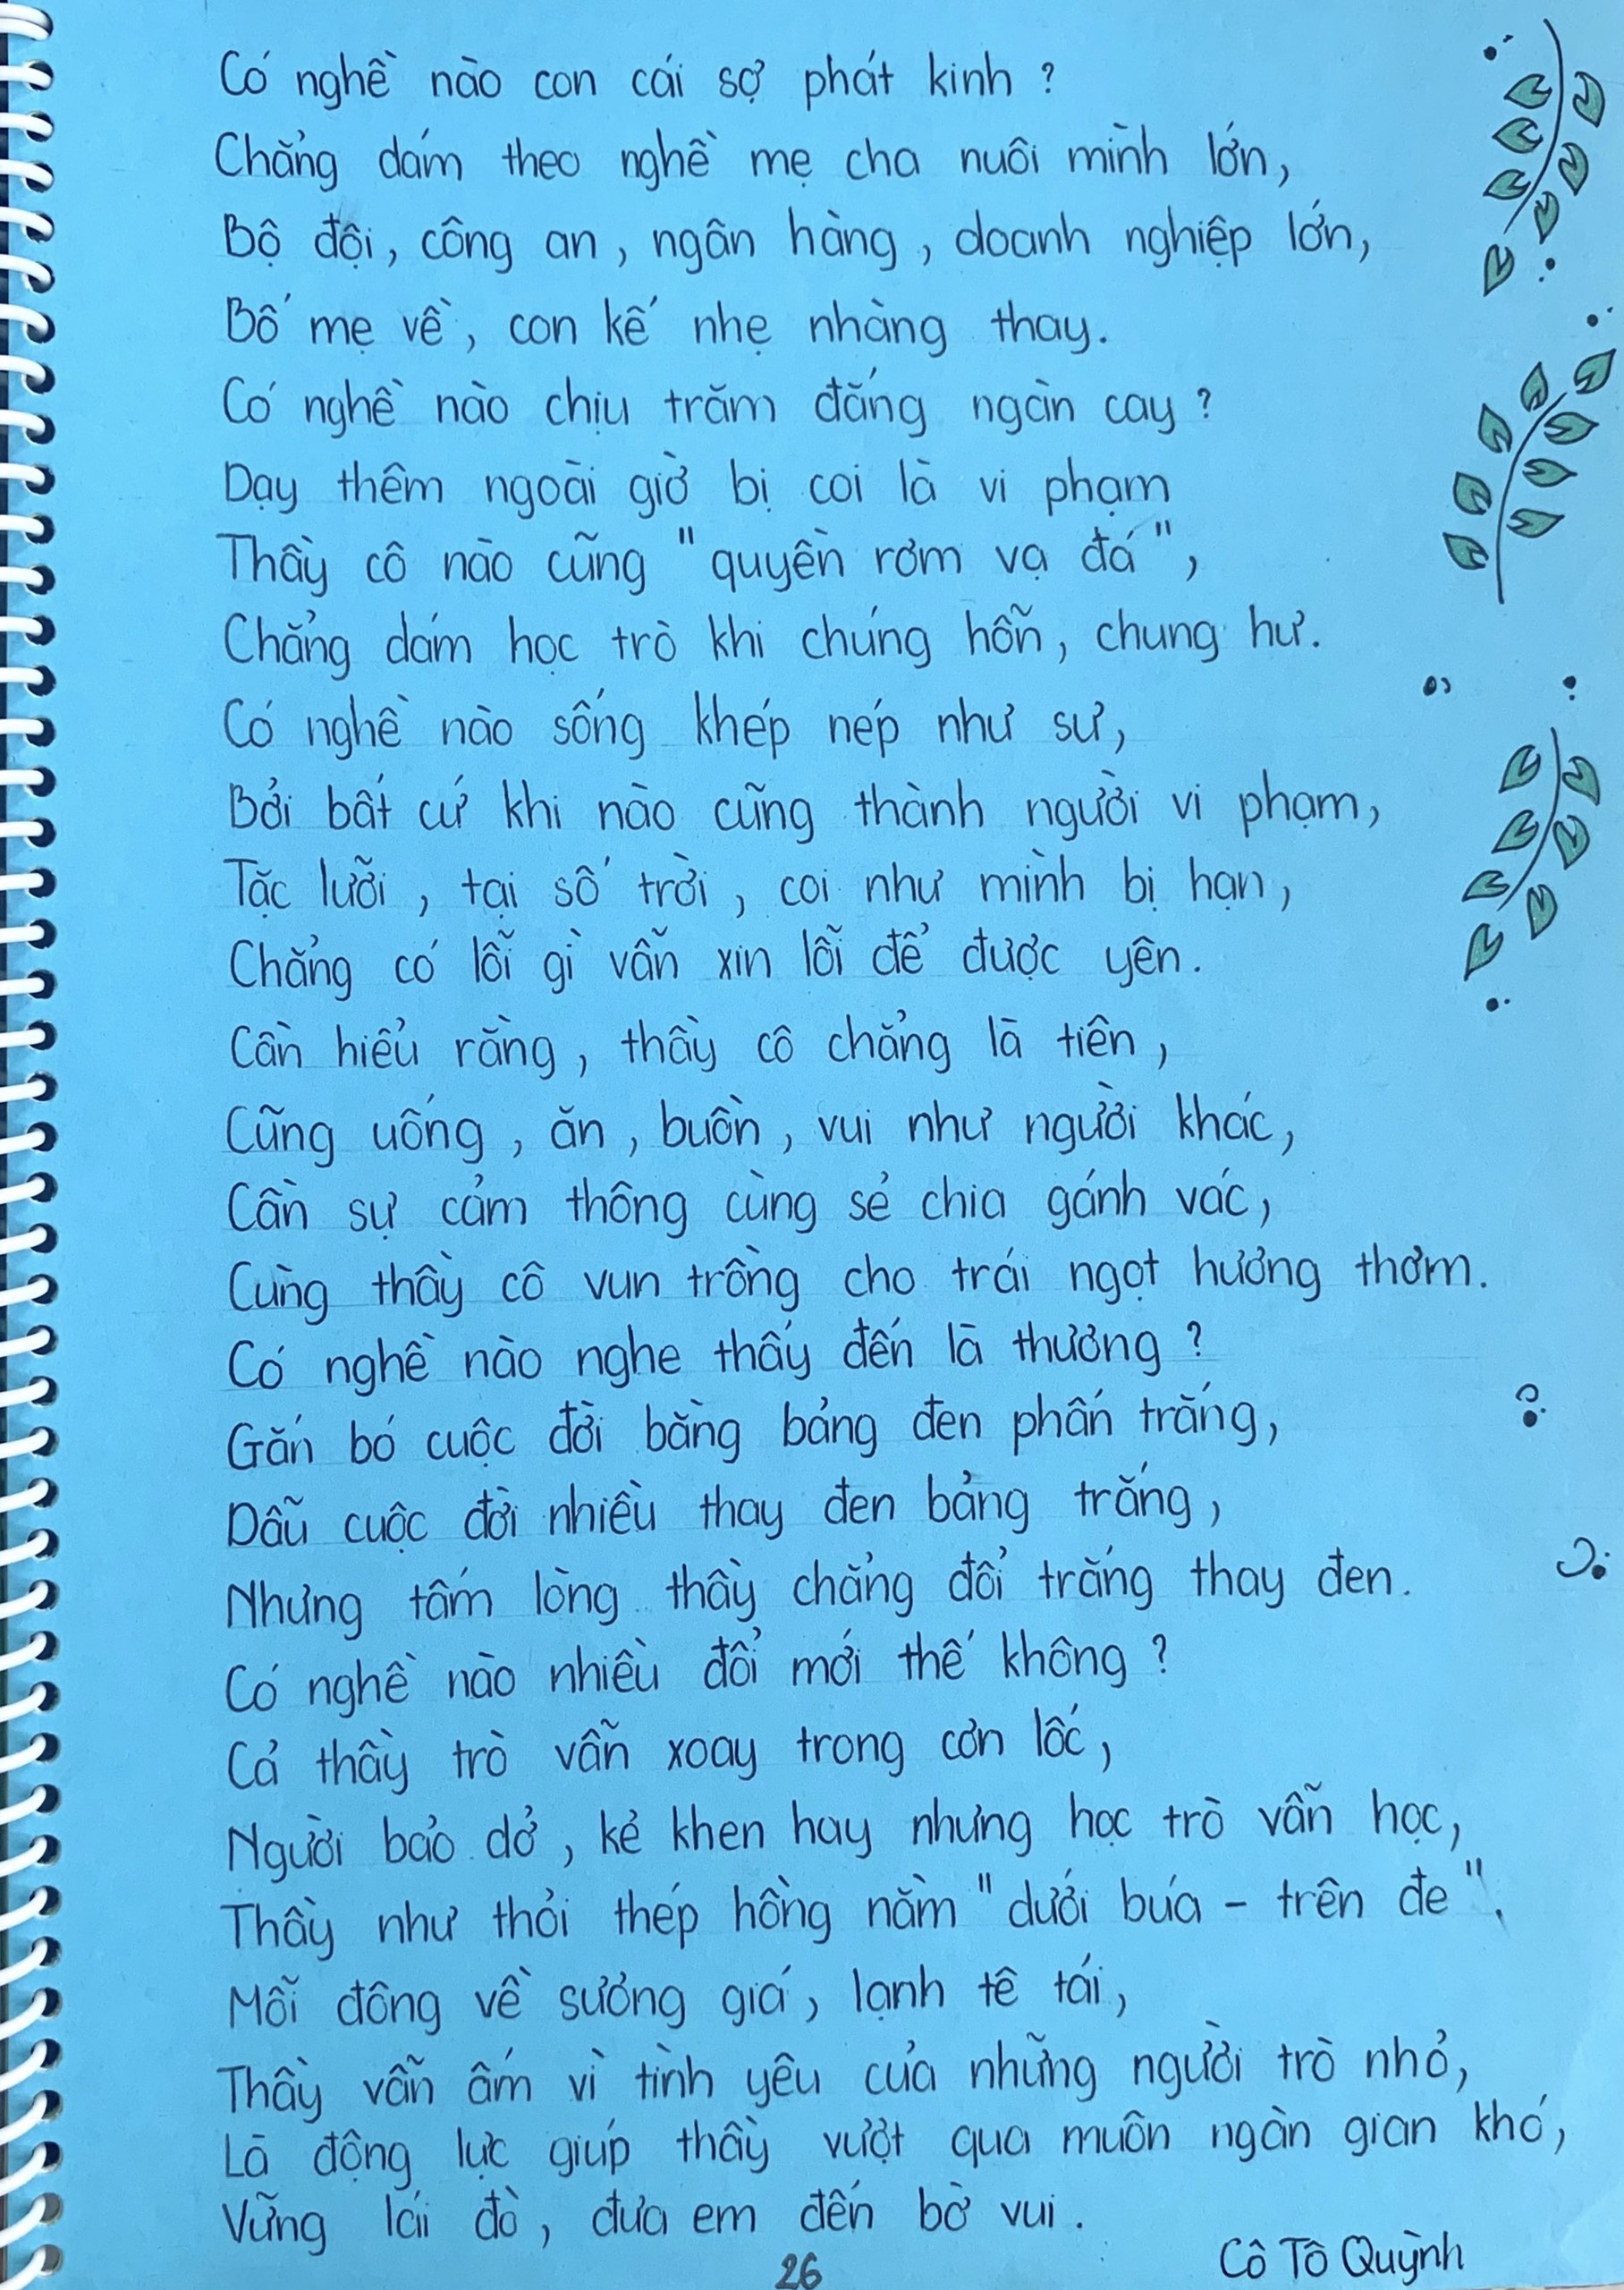 Có nghề nào con cái sợ phát kinh ?
Chẳng dám theo nghề mẹ cha nuôi mình lớn,
Bộ đội, công an, ngân hàng, doanh nghiệp lớn,
Bố mẹ về, con kế nhẹ nhàng thay.
Có nghề nào chịu trăm đắng ngàn cay ?
Dạy thêm ngoài giờ bị coi là vi phạm
Thầy cô nào cũng "quyền rơm vạ đá",
Chẳng dám học trò khi chúng hỗn, chung hư.
Có nghề nào sống khép nép như sư,
Bởi bất cứ khi nào cũng thành người vi phạm,
Tặc lưỡi, tại số trời, coi như mình bị hạn,
Chẳng có lỗi gì vẫn xin lỗi để được yên.
Cần hiểu rằng, thầy cô chẳng là tiên,
Cũng uống, ăn, buồn, vui như người khác,
Cần sự cảm thông cùng sẻ chia gánh vác,
Cùng thầy cô vun trồng cho trái ngọt hương thơm.
Có nghề nào nghe thấy đến là thương ?
Gắn bó cuộc đời bằng bảng đen phấn trắng,
Dẫu cuộc đời nhiều thay đen bảng trắng,
Nhưng tấm lòng thầy chẳng đổi trắng thay đen.
Có nghề nào nhiều đổi mới thế không ?
Cả thầy trò vẫn xoay trong cơn lốc,
Người bảo dở, kẻ khen hay nhưng học trò vẫn học,
Thầy như thỏi thép hồng nằm "dưới búa - trên đe".
Mỗi đông về sương giá, lạnh tê tái,
Thầy vẫn ấm vì tình yêu của những người trò nhỏ,
Là động lực giúp thầy vượt qua muôn ngàn gian khó,
Vững lái đò, đưa em đến bờ vui.
Cô Tô Quỳnh
26